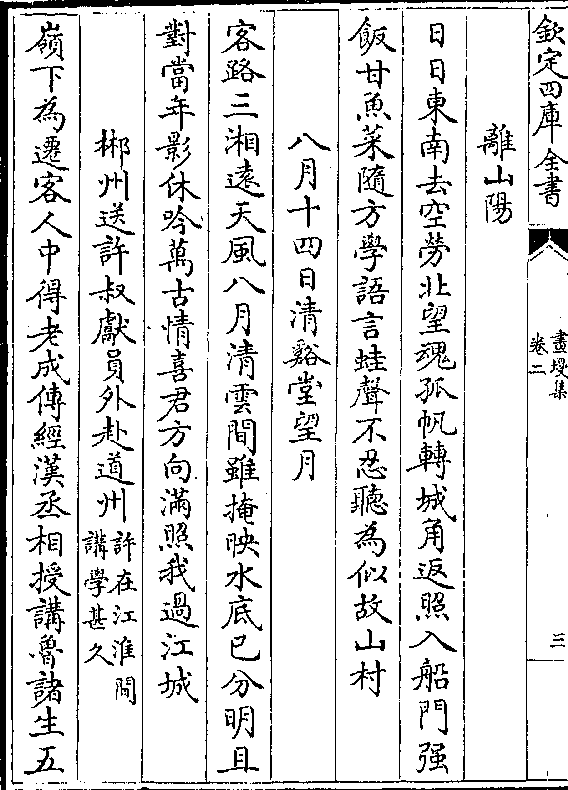 欽定四庫全書
畫墁集
卷二
三
離山陽
日日東南去空勞北望魂孤帆轉城角返照入船門强
飯甘魚菜隨方學語言蛙聲不忍聽為似故山村
八月十四日清谿堂望月
客路三湘遠天風八月清雲間雖掩映水底已分明且
對當年影休吟萬古情喜君方向滿照我過江城
郴州送許叔獻員外赴道州許在江淮間講學甚久
嶺下為遷客人中得老成傳經漢丞相授講魯諸生五